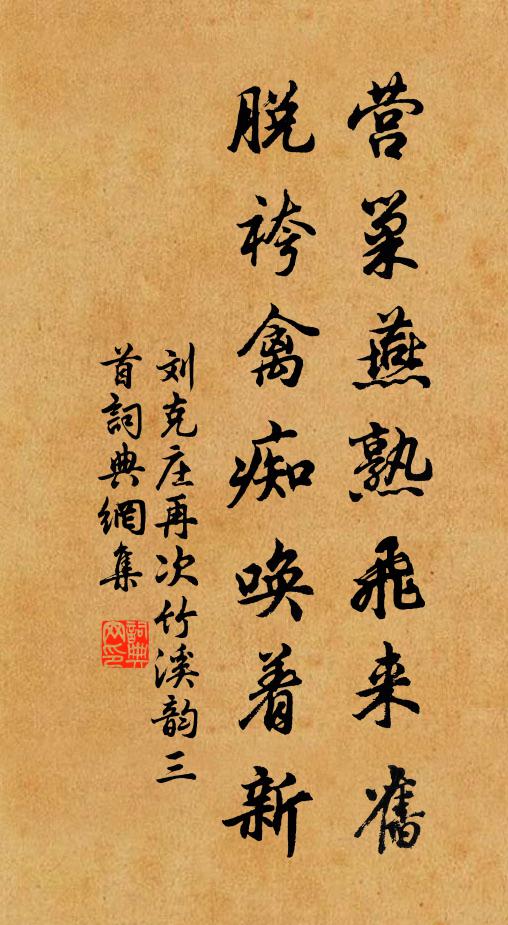 营巢燕熟飛来舊
脱袴禽痴唤着新
刘克庄再次竹溪韵三
首詞典網集
詞典
网印